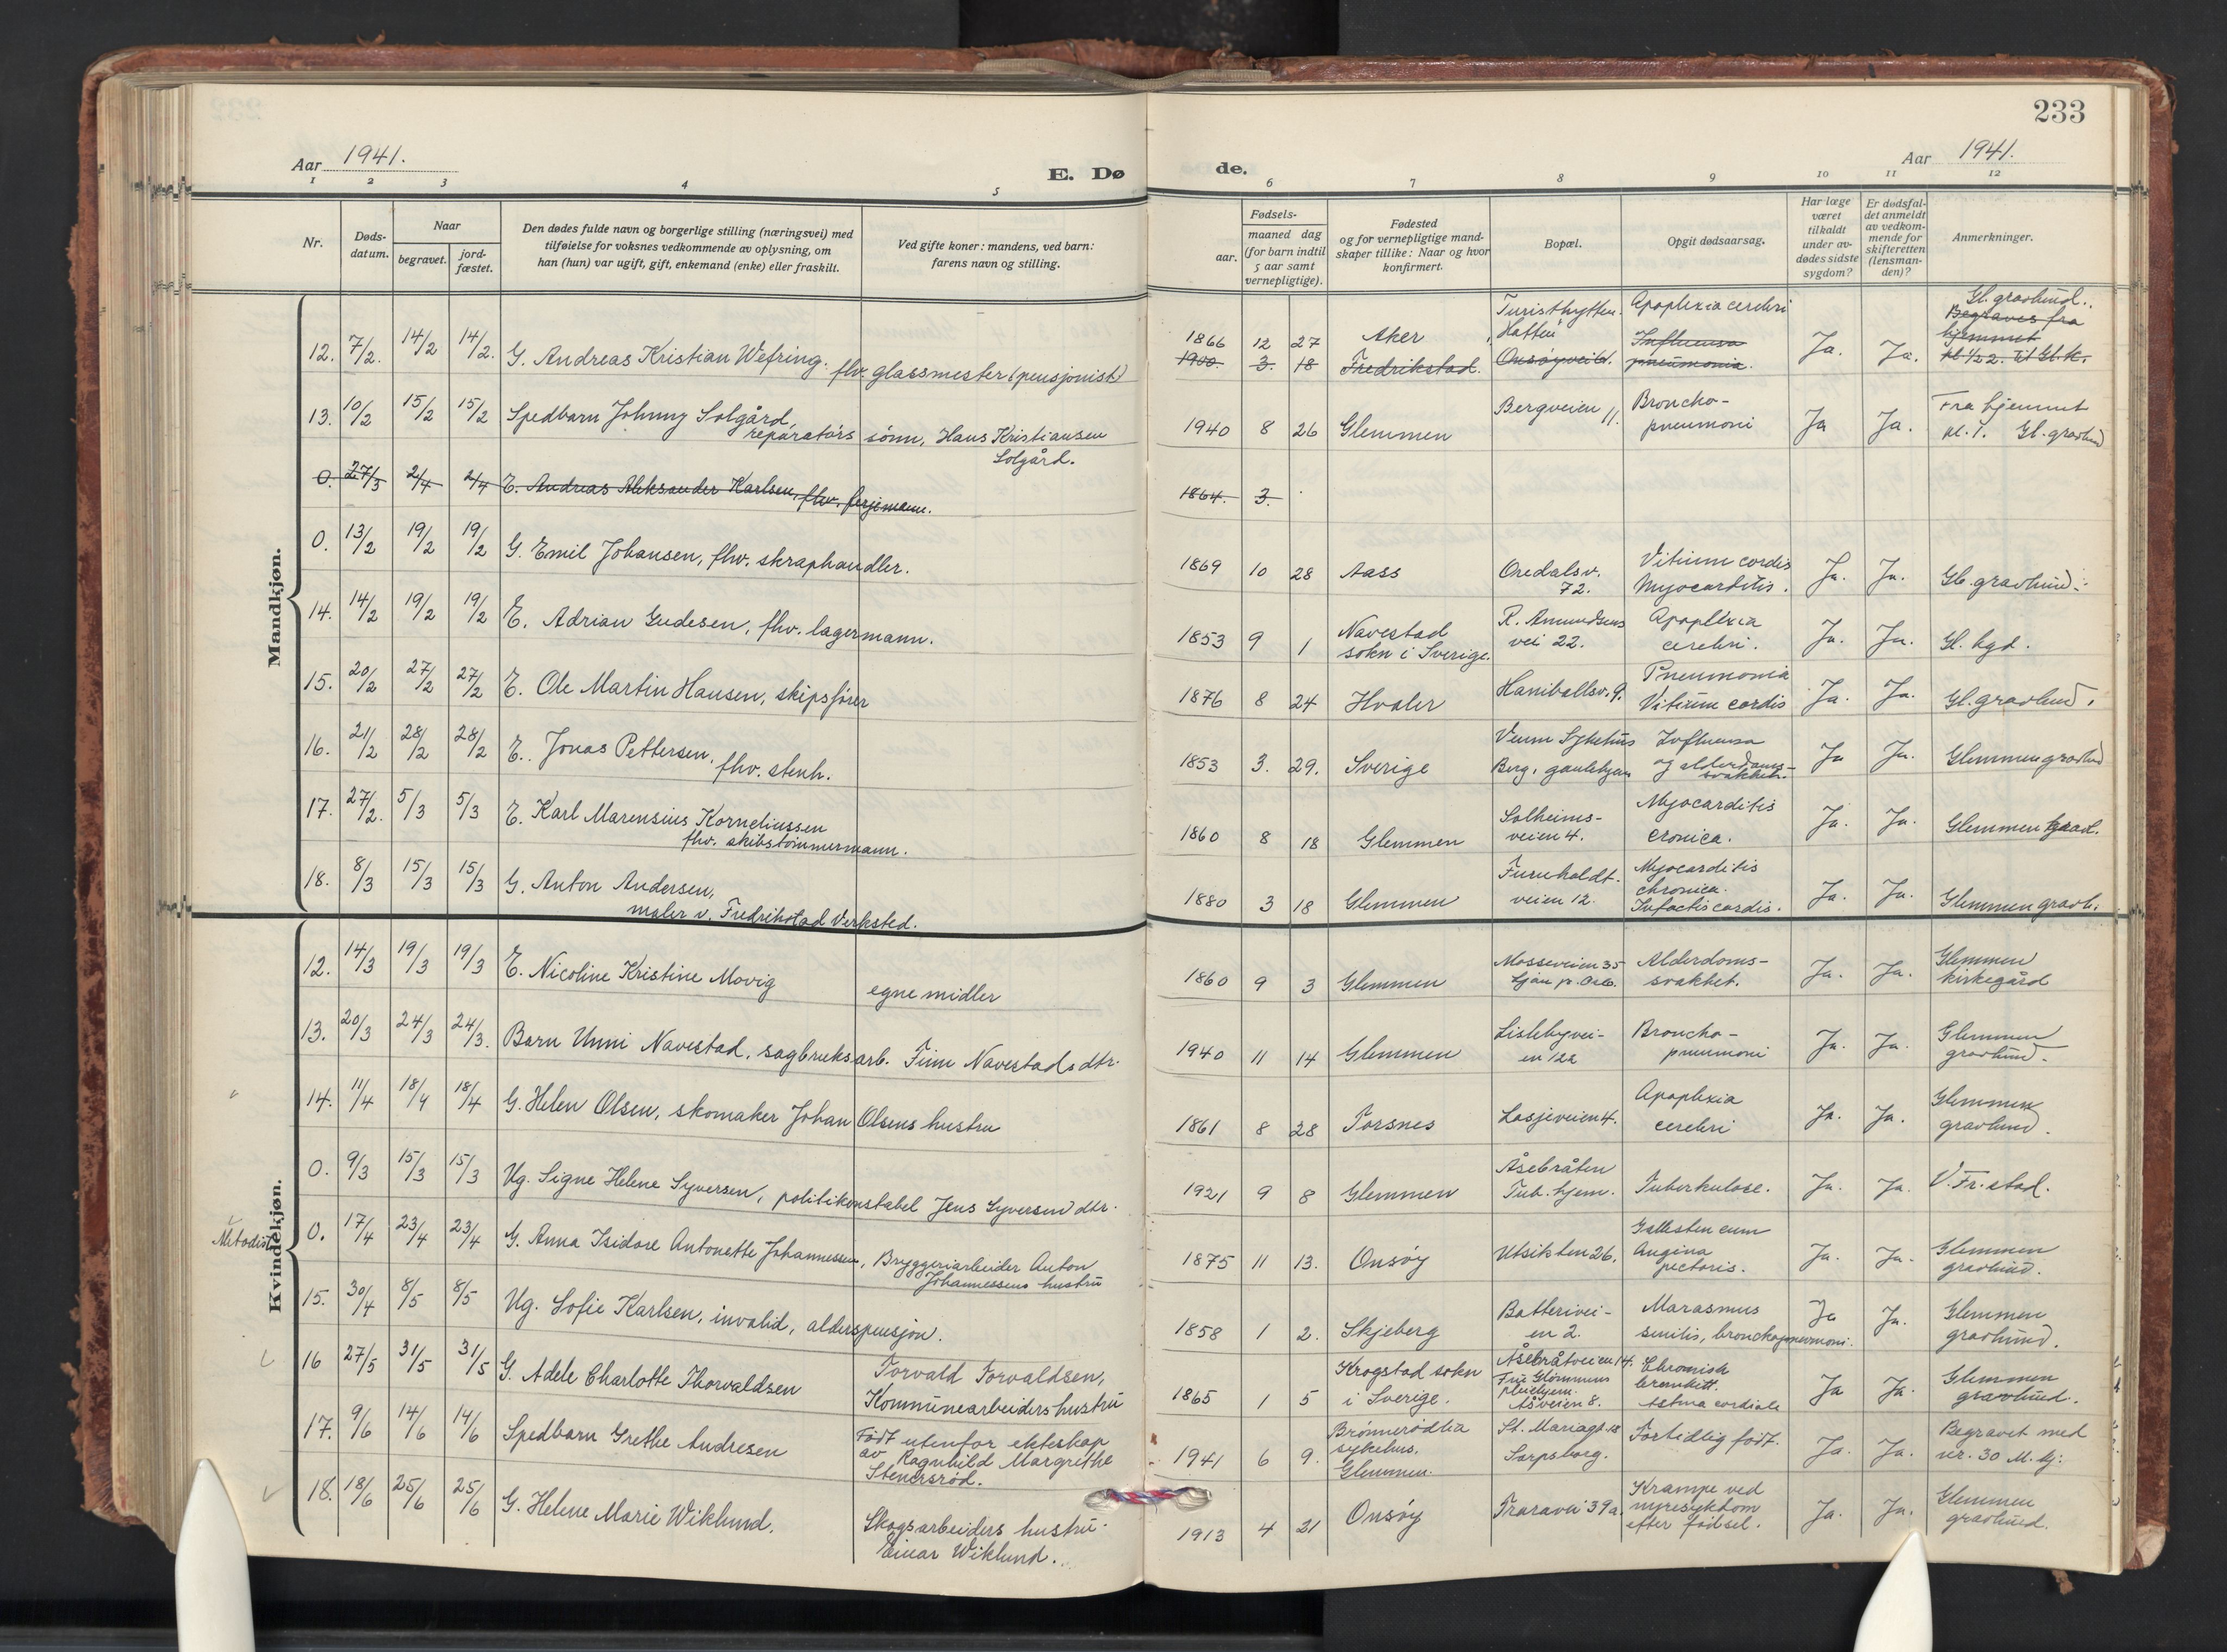 233
Aar 1941.
E. Dø
de.
Aar 1941.
1 2 3 4 5 6 7 8 9 10 11 12
Nr.
Døds-
datum.
Naar
begravet.
jord-
fæstet.
Den dødes fulde navn og borgerlige stilling (næringsvei) med
tilføielse for voksnes vedkommende av oplysning, om
han (hun) var ugift, gift, enkemand (enke) eller fraskilt.
Ved gifte koner: mandens, ved barn:
farens navn og stilling.
Fødsels-
aar.
maaned dag
(for barn indtil
5 aar samt
vernepligtige).
Fødested
og for vernepligtige mand-
skaper tillike: Naar og hvor
konfirmert.
Bopæl.
Opgit dødsaarsag.
Har læge
været
tilkaldt
under av-
dødes sidste
sygdom?
Er dødsfal-
det anmeldt
av vedkom-
mende for
skifteretten
(lensman-
den)?
Anmerkninger.
Mandkjøn.
12. 7/2. 14/2 14/2. G. Andreas Kristian Wefring. fhv. glassmester (pensjonist)
1866 12 27 Aker Turisthytten "Hatten" Apoplexia cerebri Ja. Ja. Gl. gravlund.
1910. 3. 18 Fredrikstad. Onsøyveien. Influensa pneumonia. Begraves fra
hjemmet
kl. 1/2 2. til Gl. k.
13. 10/2 15/2 15/2 Spedbarn Johnny Solgård,
reparatørs sønn, Hans Kristiansen
Solgård.
1940 8 26 Glemmen Bergveien 11. Broncho-
pneumoni Ja Ja. Fra hjemmet
kl. 1. Gl. gravlund
0. 27/3 2/4 2/4 E. Andreas Aleksander Karlsen, fhv. ferjemann.
1864. 3.
0. 13/2 19/2 19/2 G. Emil Johansen, fhv. skraphandler.
1869 10 28 Aass Oredalsv.
72. Vitium cordis
Myocarditis. Ja. Ja. Gl. gravlund.
14. 14/2 19/2 19/2 E. Adrian Gudesen, fhv. lagermann.
1853 9 1 Navestad
sokn i Sverige. R. Amundsens
vei 22. Apoplexia
cerebri. Ja. Ja. Gl. kgd.
15. 20/2 27/2 27/2 E. Ole Martin Hansen, skipsfører
1876 8 24 Hvaler Haniballsv. 9. Pneumonia
Vitium cordis Ja. Ja. Gl. gravlund.
16. 21/2 28/2 28/2 E. Jonas Pettersen. fhv. stenh.
1853 3. 29. Sverige Veum Sykehus
Berg, gamlehjem Influensa
og alderdoms-
svakhet. Ja Ja. Glemmen gravlund
17. 27/2. 5/3 5/3 E. Karl Marensius Korneliussen
fhv. skibstømmermann.
1860 8 18 Glemmen Solheims-
veien 4. Myocarditis
cronica. Ja. Ja. Glemmen
18. 8/3 15/3 15/3 G. Anton Andersen,
maler v. Fredrikstad Verksted.
1880 3 18 Glemmen Furuholdt-
veien 12. Myocarditis
chronica.
Infactis cordis. Ja. Ja. Glemmen gravl.
Kvindekjøn.
12. 14/3 19/3 19/3 E. Nicoline Kristine Movig egne midler
1860 9 3 Glemmen Mosseveien 35
Ljan pr. Oslo. Alderdoms-
svakhet. Ja. Ja. Glemmen
kirkegård
13. 20/3 24/3 24/3. Barn Unni Navestad, sagbruksarb. Finn Navestads dtr.
1940 11 14 Glemmen Lislebyvei-
en 122 Broncho-
pneumoni Ja. Ja. Glemmen
gravlund.
14. 11/4 18/4 18/4 G. Helen Olsen, skomaker Johan Olsens hustru
1861 8 28 Torsnes Losjeveien 4. Apoplexia
cerebri Ja. Ja. Glemmen
gravlund.
0. 9/3 15/3 15/3 Ug. Signe Helene Syversen, politikonstabel Jens Syversen dtr.
1921 9 8 Glemmen Åsebråten
Tub. hjem. Tuberkulose. Ja. Ja. V. Fr.stad.
Metodist
0. 17/4 23/4 23/4 G. Anna Isidore Antonette Johannessen, Bryggeriarbeider Anton
Johannessens hustru
1875 11 13. Onsøy Utsikten 26. Gallesten cum
Angina
pectoris. Ja. Ja. Glemmen
gravlund.
15. 30/4 8/5 8/5 Ug. Sofie Karlsen, invalid, alderspensjon.
1858 1 2. Skjeberg Batterivei-
en 2. Marasmus
senilis, bronchopneumoni. Ja Ja. Glemmen
gravlund.
16 27/5 31/5 31/5 G. Adele Charlotte Thorvaldsen Torvald Torvaldsen,
Kommunearbeiders hustru
1865 1 5 Krogstad sokn
i Sverige. Åsebråtveien 14.
Fru Glommens
pleiehjem.
Åsveien 8. Chronisk
bronkitt.
Astma cordiale Ja Ja. Glemmen
gravlund.
17. 9/6 14/6 14/6 Spedbarn Grethe Andresen Født utenfor ekteskap
av Ragnhild Margrethe
Stenersrød.
1941 6 9. Brønnerødlia
sykehus.
Glemmen. St. Mariagt. 18
Sarpsborg. Fortidlig født. Ja. Ja. Begravet med
nr. 30 M. kj.
18. 18/6 25/6 25/6 G. Helene Marie Wiklund. Skogsarbeiders hustru.
Einar Wiklund.
1913 4 21 Onsøy Traravei 39a. Krampe ved
nyresykdom
efter fødsel. Ja. Ja. Glemmen
gravlund.